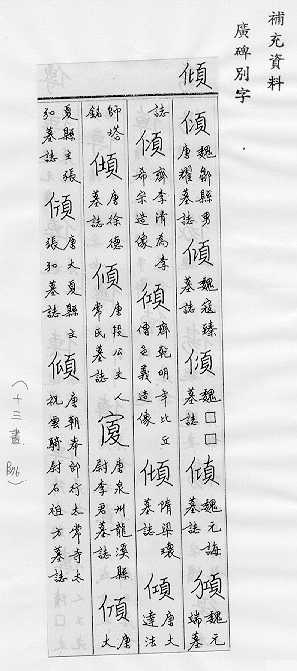 補充資料
廣碑別字
傾
傾 魏鄒縣男唐耀墓誌 傾 魏寇臻墓誌 傾 魏□□墓誌 傾 魏元誨墓誌 傾 魏元端墓
誌 傾 齊李清為李希宗造像 傾 齊乾明年比丘僧邑義造像 傾 隋梁瓌墓誌 傾 唐大達法
師塔銘 傾 唐徐德墓誌 傾 唐段公夫人常氏墓誌 唐泉州龍溪縣尉李君墓誌 傾 唐大
夏縣主張墓誌 傾 唐大夏縣主張墓誌 傾 唐朝奉郎行太常寺太祝雲騎尉石祖方墓誌
(十三畫